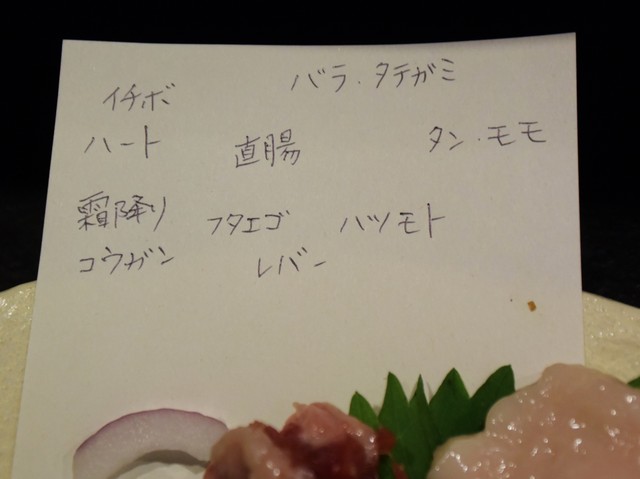 イチボ バラ・タテガミ
ハート 直腸 タン・モモ
霜降り フタエゴ ハツモト
コウガン レバー